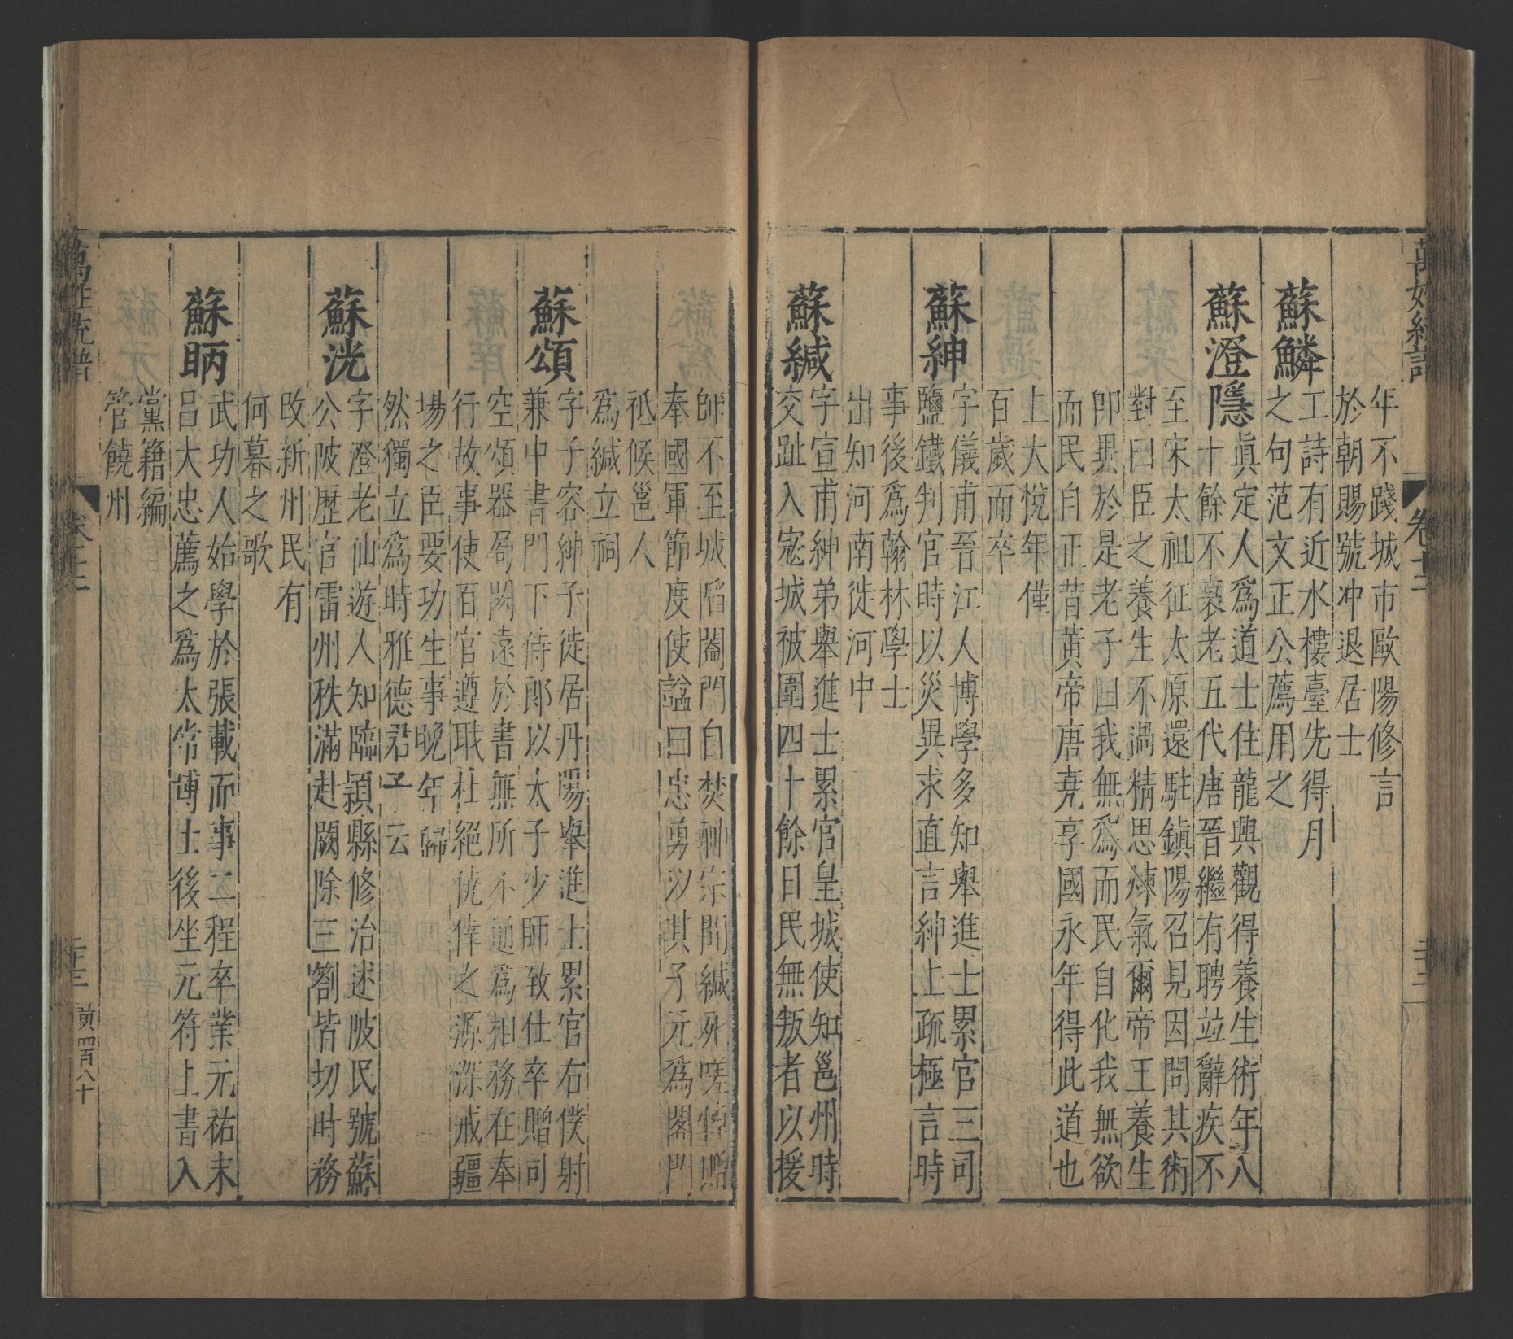 年不踐城市歐陽修言
於朝賜號冲退居士
蘇鱗
工詩有近水樓臺先得月
之句范文正公薦用之
蘇澄隱
眞定人爲道士住龍興觀得養生術年八
十餘不衰老五代唐晉繼有聘竝辭疾不
至宋太祖征太原還駐鎮陽召見因問其術
對曰臣之養生不過精思煉氣爾帝王養生
卽異於是老子曰我無爲而民自化我無欲
而民自正昔黃帝唐堯享國永年得此道也
上大悅年僅
百歲而卒
蘇紳
字儀甫晉江人博學多知舉進士累官三司
鹽鐵判官時以災異求直言紳上疏極言時
事後爲翰林學士
出知河南徙河中
蘇緘
字宣甫紳弟舉進士累官皇城使知邕州時
交趾入寇城被圍四十餘日民無叛者以援
師不至城陷闔門自焚神宗聞緘死嗟悼贈
奉國軍節度使諡曰忠勇以其子元爲閣門
祗候邕人
爲緘立祠
蘇頌
字子容紳子徙居丹陽舉進士累官右僕射
兼中書門下侍郎以太子少師致仕卒贈司
空頌器局閎遠於書無所不通爲相務在奉
行故事使百官遵職杜絕僥倖之源深戒疆
場之臣要功生事晚年歸
然獨立爲時雅德君子云
蘇洸
字澄老仙遊人知臨潁縣修治述陂民號蘇
公陂歷官雷州秩滿赴闕除三劄皆切時務
改新州民有
何暮之歌
蘇昞
武功人始學於張載而事二程卒業元祐末
呂大忠薦之爲太常博士後坐元符上書入
黨籍編
管饒州
萬姓統譜
卷十二